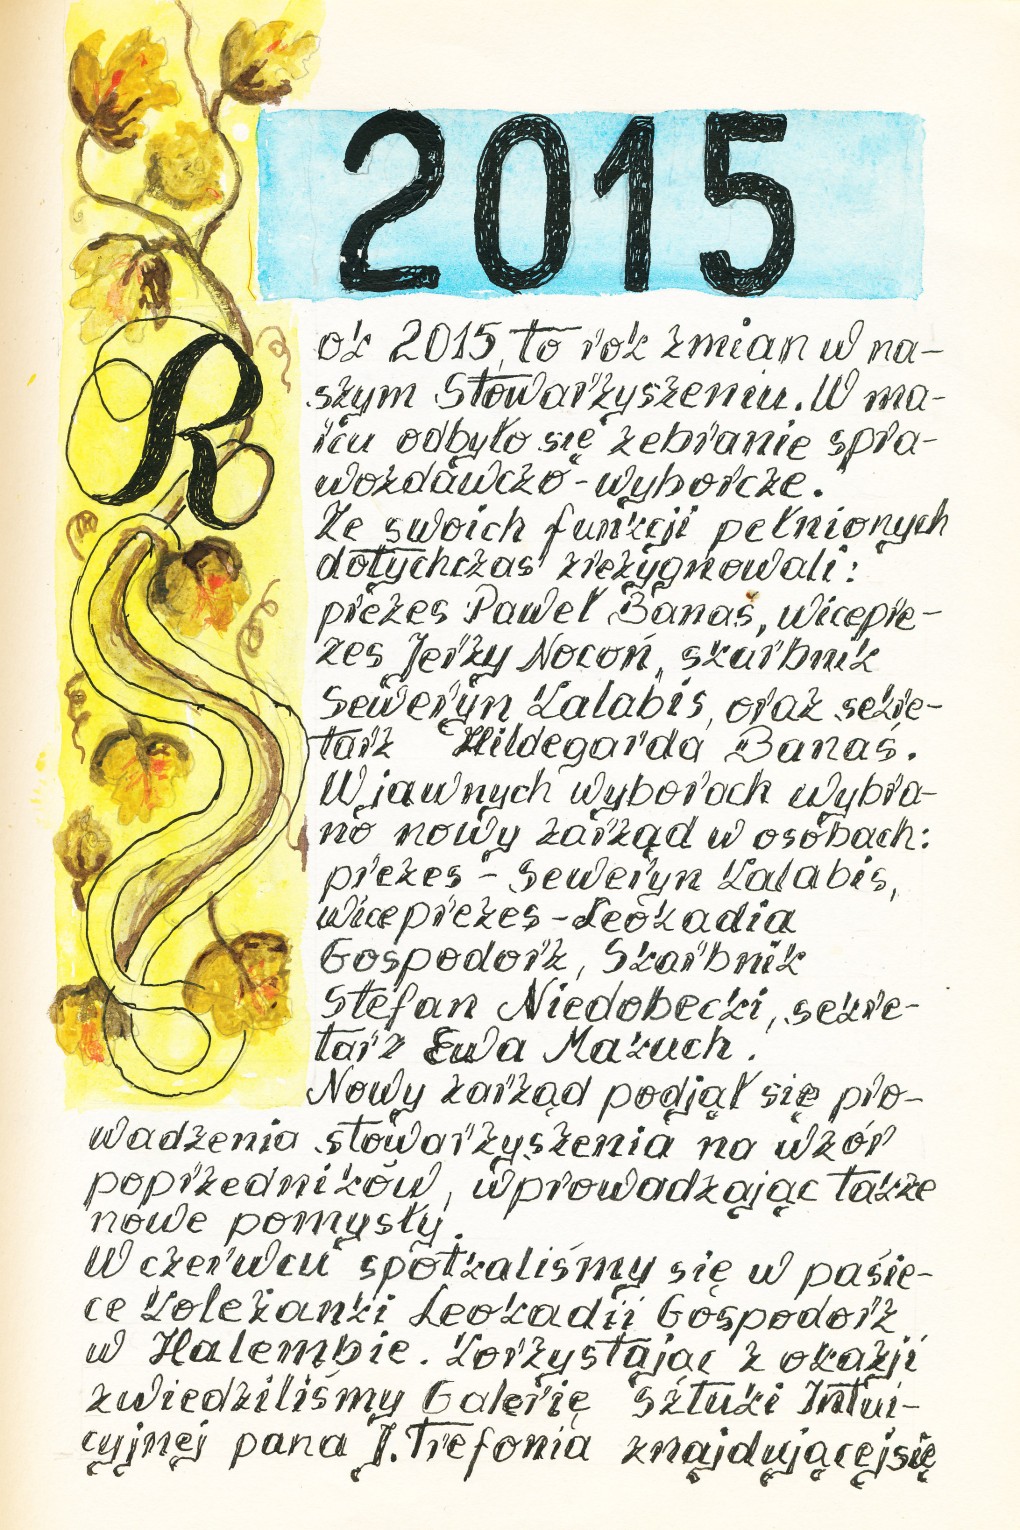 2015
Rok 2015, to rok zmian w na-
szym Stowarzyszeniu. W ma-
rcu odbyło się zebranie spra-
wozdawczo-wyborcze.
Ze swoich funkcji pełnionych
dotychczas zrezygnowali:
prezes Paweł Banaś, wicepre-
zes Jerzy Nocoń, skarbnik
Seweryn Kalabis, oraz sekre-
tarz Hildegarda Banaś.
W jawnych wyborach wybra-
no nowy zarząd w osobach:
prezes - Seweryn Kalabis,
wiceprezes - Leokadia
Gospodorz, Skarbnik
Stefan Niedobecki, sekre-
tarz Ewa Mazuch.
Nowy zarząd podjął się pro-
wadzenia stowarzyszenia na wzór
poprzedników, wprowadzając także
nowe pomysły.
W czerwcu spotkaliśmy się w pasie-
ce koleżanki Leokadii Gospodorz
w Halembie. Korzystając z okazji
zwiedziliśmy Galerię Sztuki Intui-
cyjnej pana J. Trefonia znajdującej się